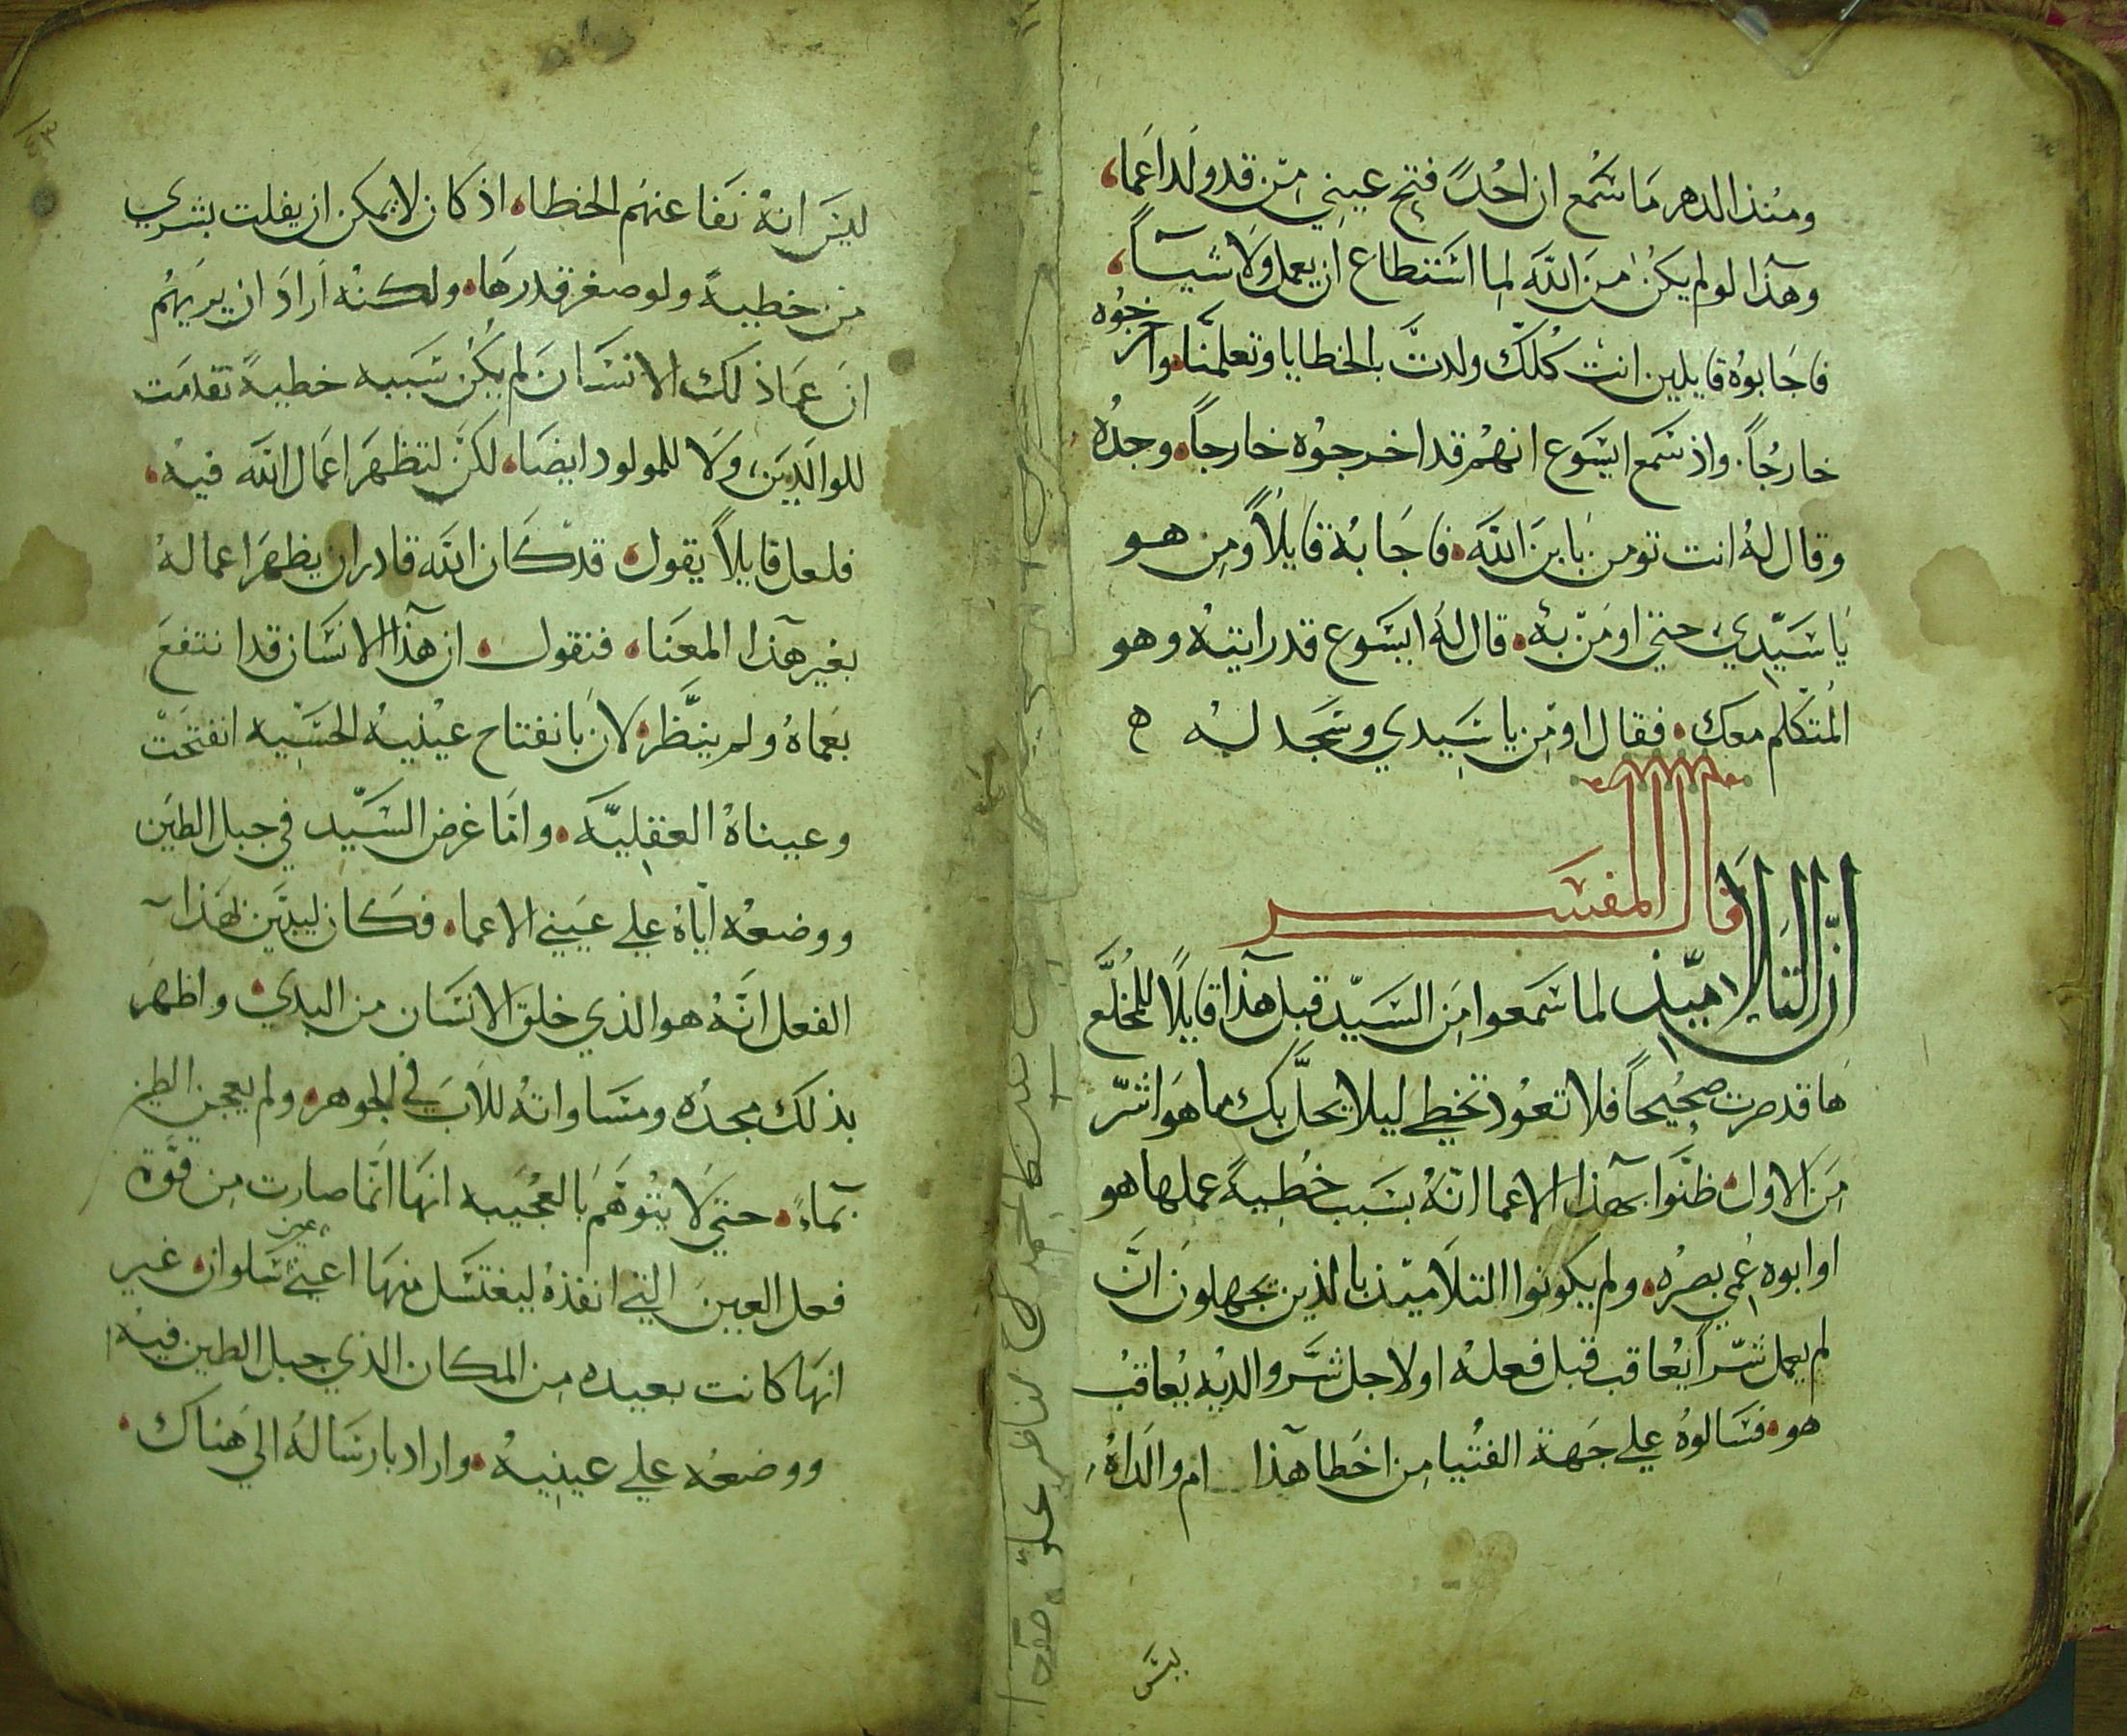 ومنذ الدهر ما سمع ان احدً فتح عيني من قد ولد اعما،
وهذا لو لم يكن من الله لما استطاع ان يعمل ولا شياً،
فاجابوه قايلين انت كلك ولدت بالخطايا وتعلمنا. واخرجوه
خارجًا. واذ سمع ايسوع انهم قد اخرجوه خارجاً. وجده
وقال له انت تومن بابن الله. فاجابه قايلاً ومن هو
يا سيدي حتي اومن به. قال له ايسوع قد رايته وهو
المتكلم معك. فقال اومن يا سيدي وسجد له ه
قال المفسر
ان التلاميذ لما سمعوا من السيد قبل هذا قايلًا للمخلع
ها قد صرت صحيحاً فلا تعود تخطي ليلا يحل بك ما هو اشر
من الاول ظنوا بهذا الاعما انه بسبب خطيةً عملها هو
او ابوه عمي بصره. ولم يكونوا التلاميذ بالذين يجهلون ان
لم يعمل شراً يعاقب قبل فعله او لاجل شر والديه يعاقب
هو. فسالوه علي جهة الفتيا من اخطا هذا ام والداه
ليس
ليس انه نفا عنهم الخطاه. اذ كان لا يمكن ان يفلت بشري
من خطيةً ولو صغر قدرها. ولكنه اراد ان يريهم
ان عما ذلك الانسان لم يكن سببه خطيةً تقدمت
للوالدين، ولا للمولود ايضا، لكن لتظهر اعمال الله فيه.
فلعل قايلاً يقول. قد كان الله قادر ان يظهر اعماله
بغير هذا المعنا. فنقول. ان هذا الانسان قد انتفع
بعماه ولم ينظر. لان بانفتاح عينيه الحسيه انفتحت
وعيناه العقليه. واما غرض السيد في جبل الطين
ووضعه اياه علي عيني الاعما. فكان ليبين بهذا
الفعل انه هو الذي خلق الانسان من البدي. واظهر
بذلك مجده ومساواته للاب في الجوهر. ولم يعجن الطين
بماءٍ. حتي لا يتوهم بالعجيبه انها انما صارت من قوة
فعل العين التي انفذه ليغتسل منها اعني عين سلوان. غير
انها كانت بعيده من المكان الذي جبل الطين فيه
ووضعه علي عينيه. واراد بارساله الي هناك.